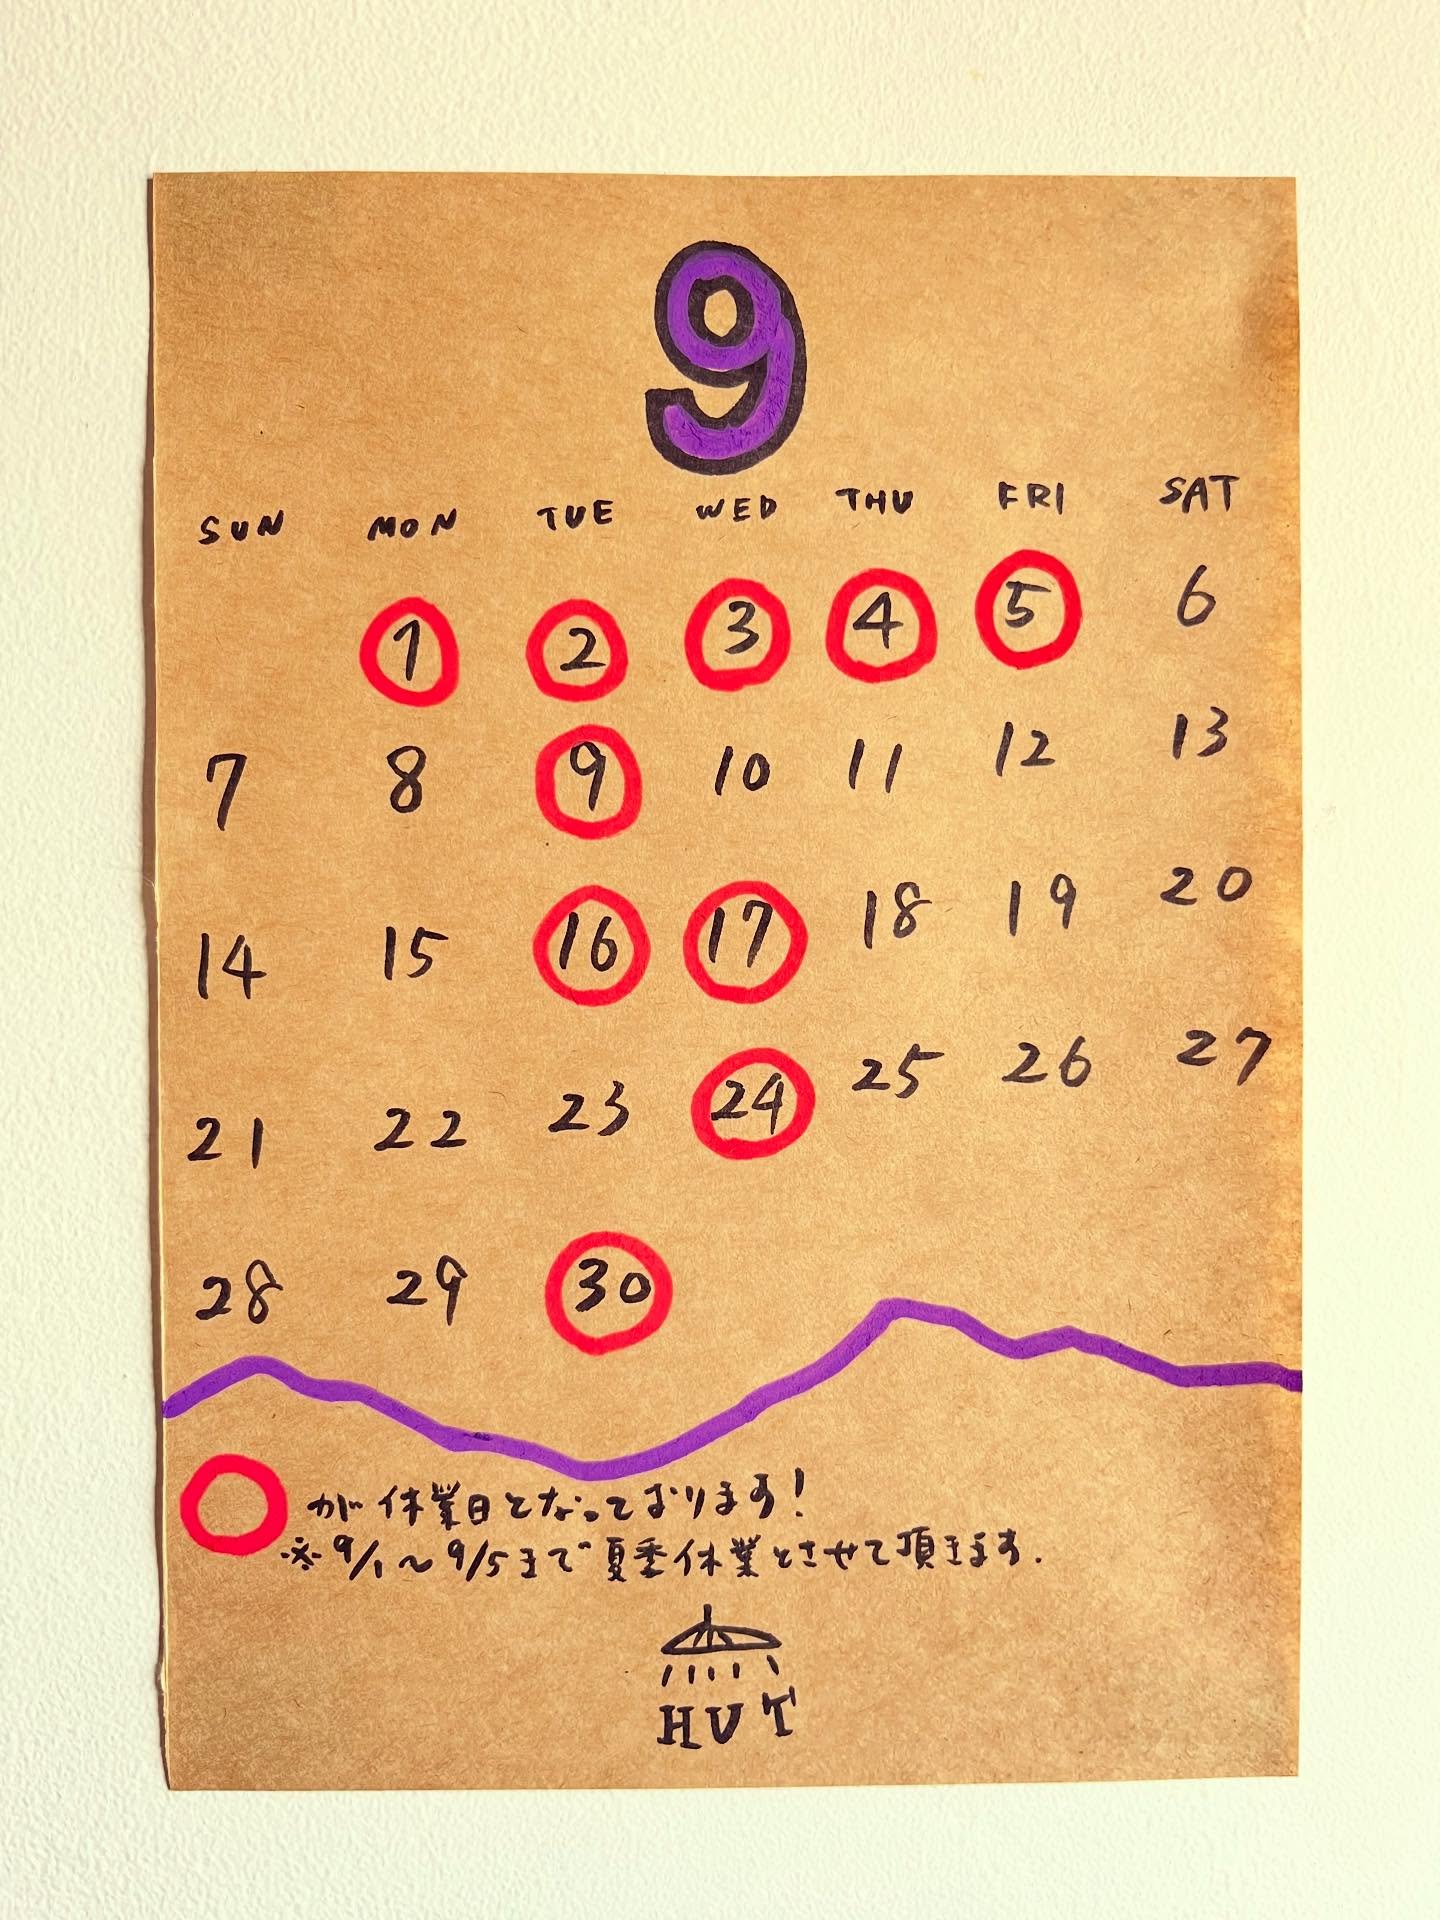 9
SUN MON TUE WED THU FRI SAT
1 2 3 4 5 6
7 8 9 10 11 12 13
14 15 16 17 18 19 20
21 22 23 24 25 26 27
28 29 30
が休業日となっております!
※9/1〜9/5まで夏季休業とさせて頂きます.
HUT